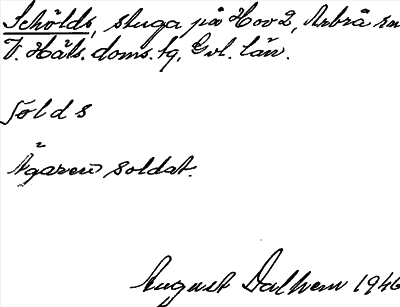 Schölds, stuga på Hov 2, Arbrå sn
V. Häls. doms. tg, Gvl. län.
ʃolds
Ägaren soldat.
August Dalhem 1946